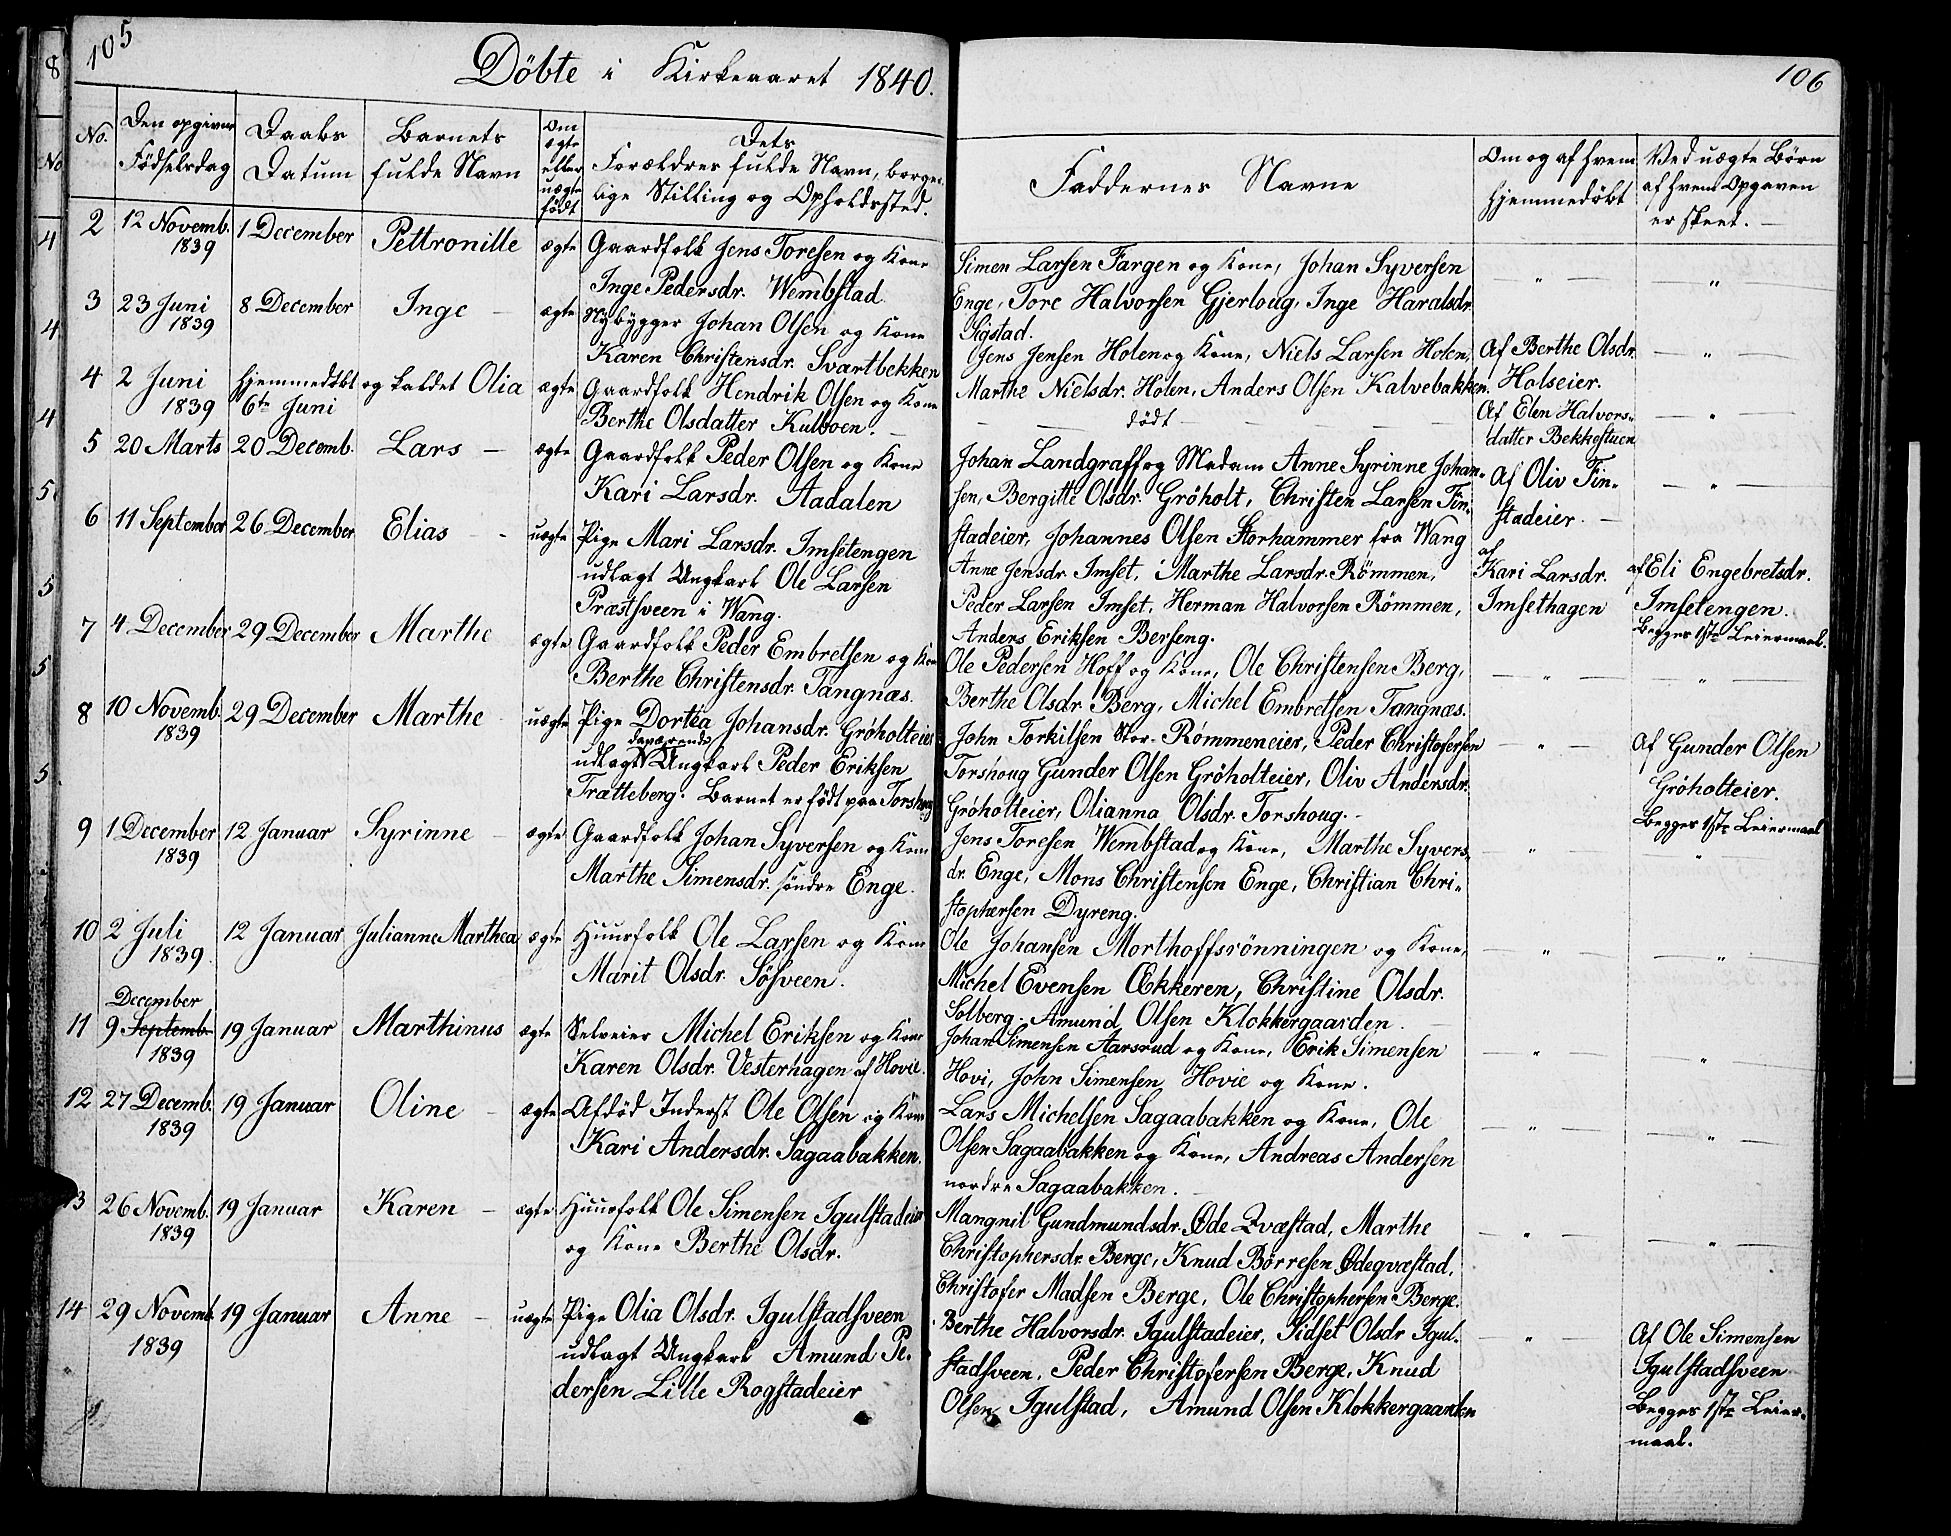 105
Döbte i Kirkeaaret 1840.
No.
Den opgivne
Födselsdag
Daabs
Datum
Barnets
fulde Navn
Om
ægte
eller
uægte
født
Dets
Forældres fulde Navn, borger-
lige Stilling og Opholdssted.
2
12 Novemb.
1839
1 December
Pettronille
ægte
Gaardfolk Jens Toresen og Kone
Inge Pedersdr. Wembstad
3
23 Juni
1839
8 December
Inge
ægte
Nybygger Johan Olsen og Kone
Karen Christensdr. Svartbekken
4
2 Juni
1839
hjemmedöbt og kaldet Olia
6te Juni
ægte
Gaardfolk Hendrik Olsen og Kone
Berthe Olsdatter Kulboen.
5
20 Marts
20 Decemb.
Lars
ægte
Gaardfolk Peder Olsen og Kone
Kari Larsdr. Aadalen
6
11 September
26 December
Elias
uægte
Pige Mari Larsdr. Imsetengen
udlagt Ungkarl Ole Larsen
Præstsveen i Wang.
7
4 December
29 December
Marthe
ægte
Gaardfolk Peder Embretsen og Kone
Berthe Christensdr. Tangnæs.
8
10 Novemb.
1839
29 December
Marthe
uægte
Pige Dortéa Johansdr. Gröholteier
udlagt Ungkarl Peder Eriksen
Trætteberg. Barnet er født paa Torshoug
9
1 December
1839
12 Januar
Syrinne
ægte
Gaardfolk Johan Syversen og Kone
Marthe Simensdr. söndre Enge.
10
2 Juli
1839.
12 Januar
Julianne Marthea
ægte
Huusfolk Ole Larsen og Kone
Marit Olsdr. Sösveen.
11
December
9 Septemb.
1839
19 Januar
Marthinus
ægte
Selveier Michel Eriksen og Kone
Karen Olsdr. Vesterhagen af Hovie.
12
27 Decemb.
1839
19 Januar
Oline
ægte
Afdöd Inderst Ole Olsen og Kone
Kari Andersdr. Sagaabakken.
13
26 Novemb.
1839
19 Januar
Karen
ægte
Huusfolk Ole Simensen Igulstadeier
og Kone Berthe Olsdr.
14
29 Novemb.
1839
19 Januar
Anne
uægte
Pige Olia Olsdr. Igulstadsveen
udlagt Ungkarl Amund Pe-
dersen Lille Rogstadeier
106
Faddernes Navne
Om og af hvem
hjemmedöbt
Ved uægte Börn
af hvem Opgaven
er skeet.
Simen Larsen Fargen og Kone, Johan Syversen
Enge, Tore Halvorsen Gjerloug, Inge Haralsdr.
Sigstad.
Jens Jensen Holen og Kone, Niels Larsen Holen,
Marthe Nielsdr. Holen, Anders Olsen Kalvebakken.
Af Berthe Olsdr.
Holseier.
dödt
Af Elen Halvors-
datter Bekkestuen
Johan Landgraff og Madam Anne Syrinne Johan-
sen, Bergitte Olsdr. Gröholt, Christen Larsen Fin-
stadeier, Johannes Olsen Storhammer fra Wang
Af Oliv Fin-
stadeier.
Anne Jensdr. Imset, Marthe Larsdr. Römmen,
Peder Larsen Imset, Herman Halvorsen Römmen,
Anders Eriksen Berseng.
af
Kari Larsdr.
Imsethagen
af Eli Engebretsdr.
Imsetengen.
Begges 1ste Leiermaal.
Ole Pedersen Hoff og Kone, Ole Christensen Berg,
Berthe Olsdr. Berg, Michel Embretsen Tangnæs.
John Torkilsen Stor-Römmeneier, Peder Christofersen
Torshoug Gunder Olsen Gröholteier, Oliv Andersdr.
Gröholteier, Olianna Olsdr. Torshoug.
Af Gunder Olsen
Gröholteier.
Begges 1ste Leiermaal
Jens Toresen Wembstad og Kone, Marthe Syvers-
dr. Enge, Mons Christensen Enge, Christian Chri-
stophersen Dyreng.
Ole Johansen Morthoffsrönningen og Kone,
Michel Evensen Ækkeren, Christine Olsdr.
Solberg. Amund Olsen Klokkergaarden.
Johan Simensen Aarsrud og Kone, Erik Simensen
Hovi, John Simensen Hovie og Kone.
Lars Michelsen Sagaabakken og Kone, Ole
Olsen Sagaabakken og Kone, Andreas Andersen
nordre Sagaabakken.
Mangnil Gundmundsdr. Öde Qvæstad, Marthe
Christophersdr. Berge, Knud Börresen Ödeqvæstad,
Christofer Madsen Berge, Ole Christophersen Berge.
Berthe Halvorsdr. Igulstadeier, Sidset Olsdr Igul-
stadsveen, Peder Christofersen Berge, Knud
Olsen Igulstad, Amund Olsen Klokkergaarden
Af Ole Simensen
Igulstadsveen
Begges 1ste Leier-
maal.